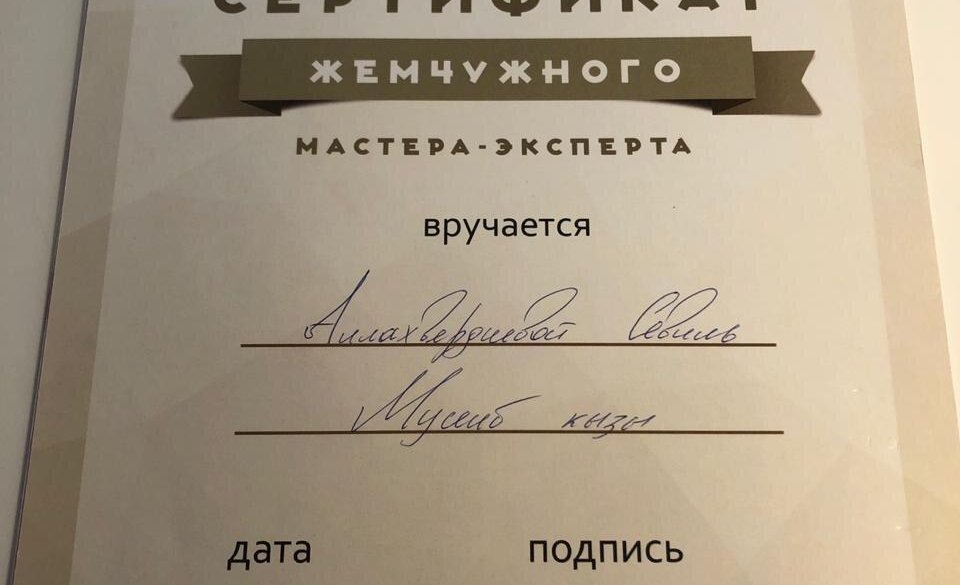 СЕРТИФИКАТ
ЖЕМЧУЖНОГО
МАСТЕРА-ЭКСПЕРТА
вручается
Аллахвердиевой Севиль
Мусиб кызы
дата подпись